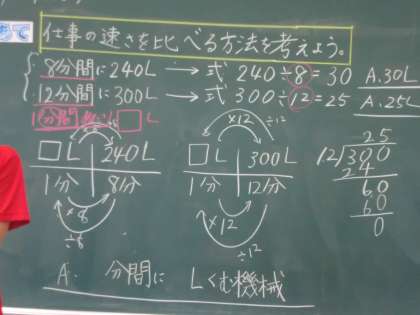 めて
仕事の速さを比べる方法を考えよう。
8分間に240L → 式 240÷8=30 A.30L
12分間に300L → 式 300÷12=25 A.25L
1分間 □L
×12 ÷12
□L 240L
1分 8分
×8
÷8
□L 300L
1分 12分
×12
÷12
25
12)300
24
60
60
0
A. 分間に Lくむ機械